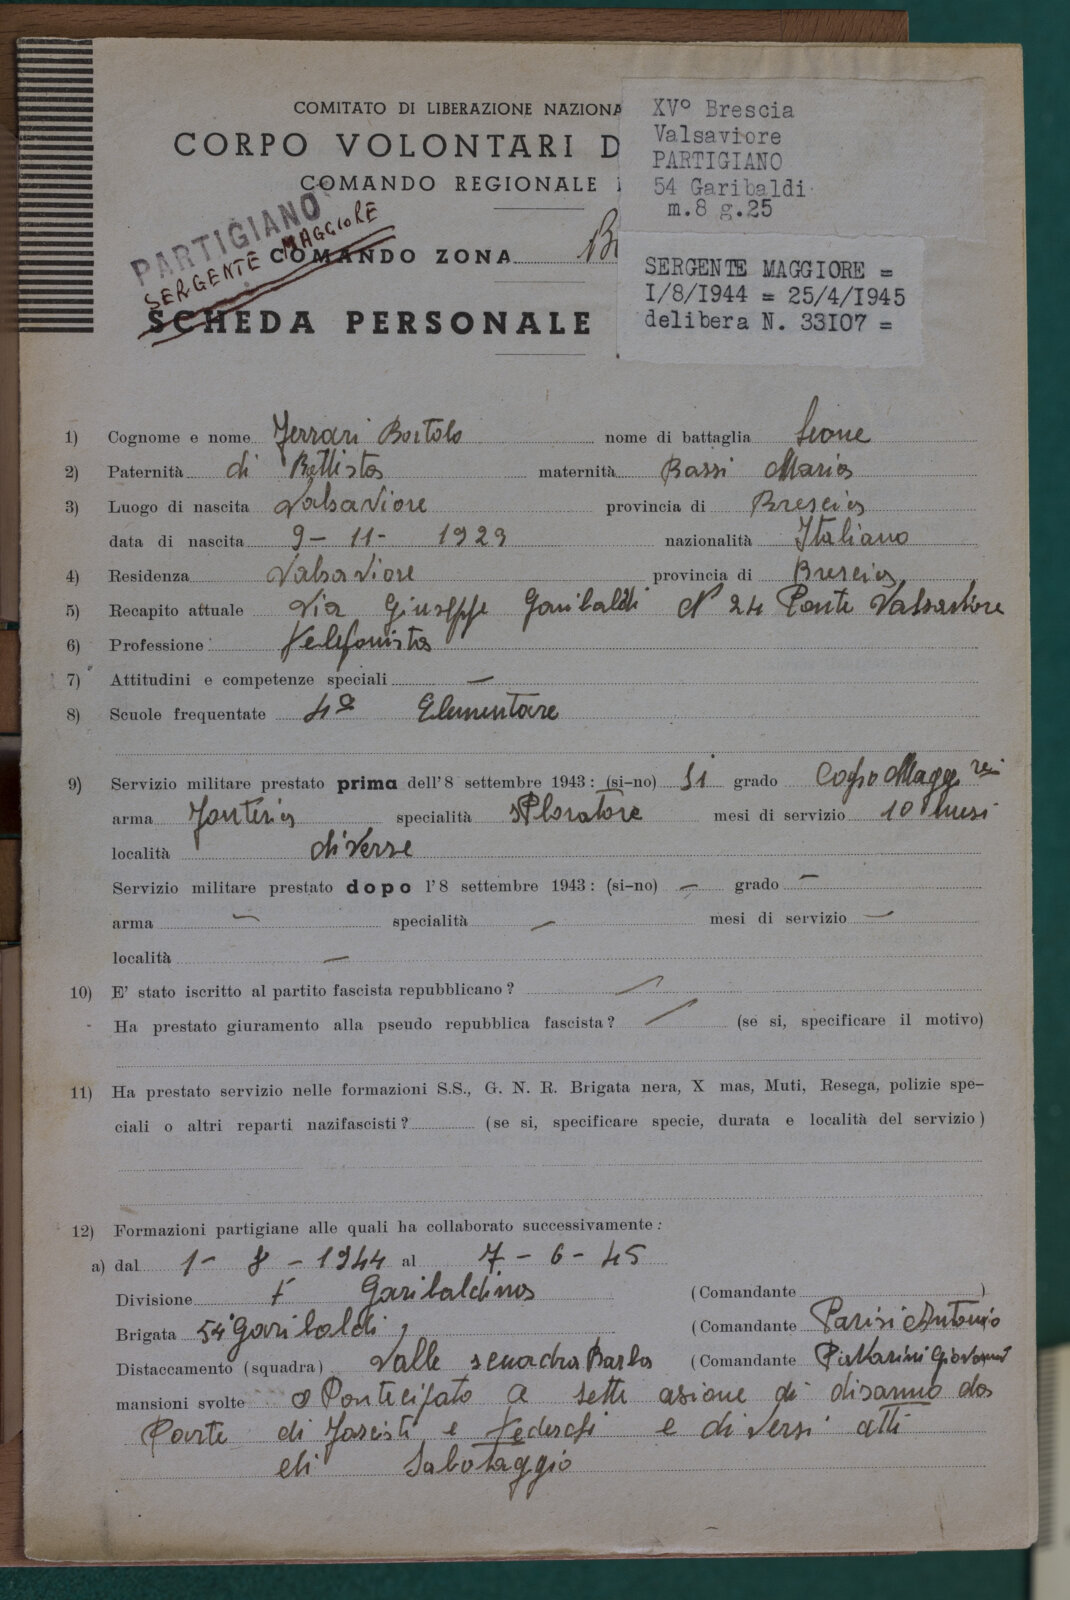 COMITATO DI LIBERAZIONE NAZIONA
CORPO VOLONTARI D
COMANDO REGIONALE
XV° Brescia
Valsaviore
PARTIGIANO
54 Garibaldi
m.8 g.25
PARTIGIANO
SERGENTE MAGGIORE
COMANDO ZONA B
SERGENTE MAGGIORE =
I/8/I944 = 25/4/I945
delibera N. 33I07 =
SCHEDA PERSONALE
1) Cognome e nome Ferrari Bortolo nome di battaglia Leone
2) Paternità di Battista maternità Bassi Maria
3) Luogo di nascita Valsaviore provincia di Brescia
data di nascita 9 - 11 - 1923 nazionalità Italiano
4) Residenza Valsaviore provincia di Brescia
5) Recapito attuale Via Giuseppe Garibaldi N 24 Ponte Valsaviore
6) Professione Telefonista
7) Attitudini e competenze speciali —
8) Scuole frequentate 4ª Elementare
9) Servizio militare prestato prima dell'8 settembre 1943: (si-no) Si grado Capo Magg re
arma Fanteria specialità sPloratore mesi di servizio 10 mesi
località diverse
Servizio militare prestato dopo l'8 settembre 1943: (si-no) — grado —
arma — specialità — mesi di servizio —
località —
10) E' stato iscritto al partito fascista repubblicano? /
Ha prestato giuramento alla pseudo repubblica fascista? / (se si, specificare il motivo)
11) Ha prestato servizio nelle formazioni S.S., G. N. R. Brigata nera, X mas, Muti, Resega, polizie spe-
ciali o altri reparti nazifascisti? (se si, specificare specie, durata e località del servizio)
12) Formazioni partigiane alle quali ha collaborato successivamente:
a) dal 1 - 8 - 1944 al 7 - 6 - 45
Divisione Garibaldina (Comandante )
Brigata 54ª Garibaldi (Comandante Parisi Antonio
Distaccamento (squadra) Valle squadra Barba (Comandante Giovanni
mansioni svolte a Partecipato a sette asione di disarmo da
Parte di fascisti e tedeschi e diversi atti
di Sabotaggio